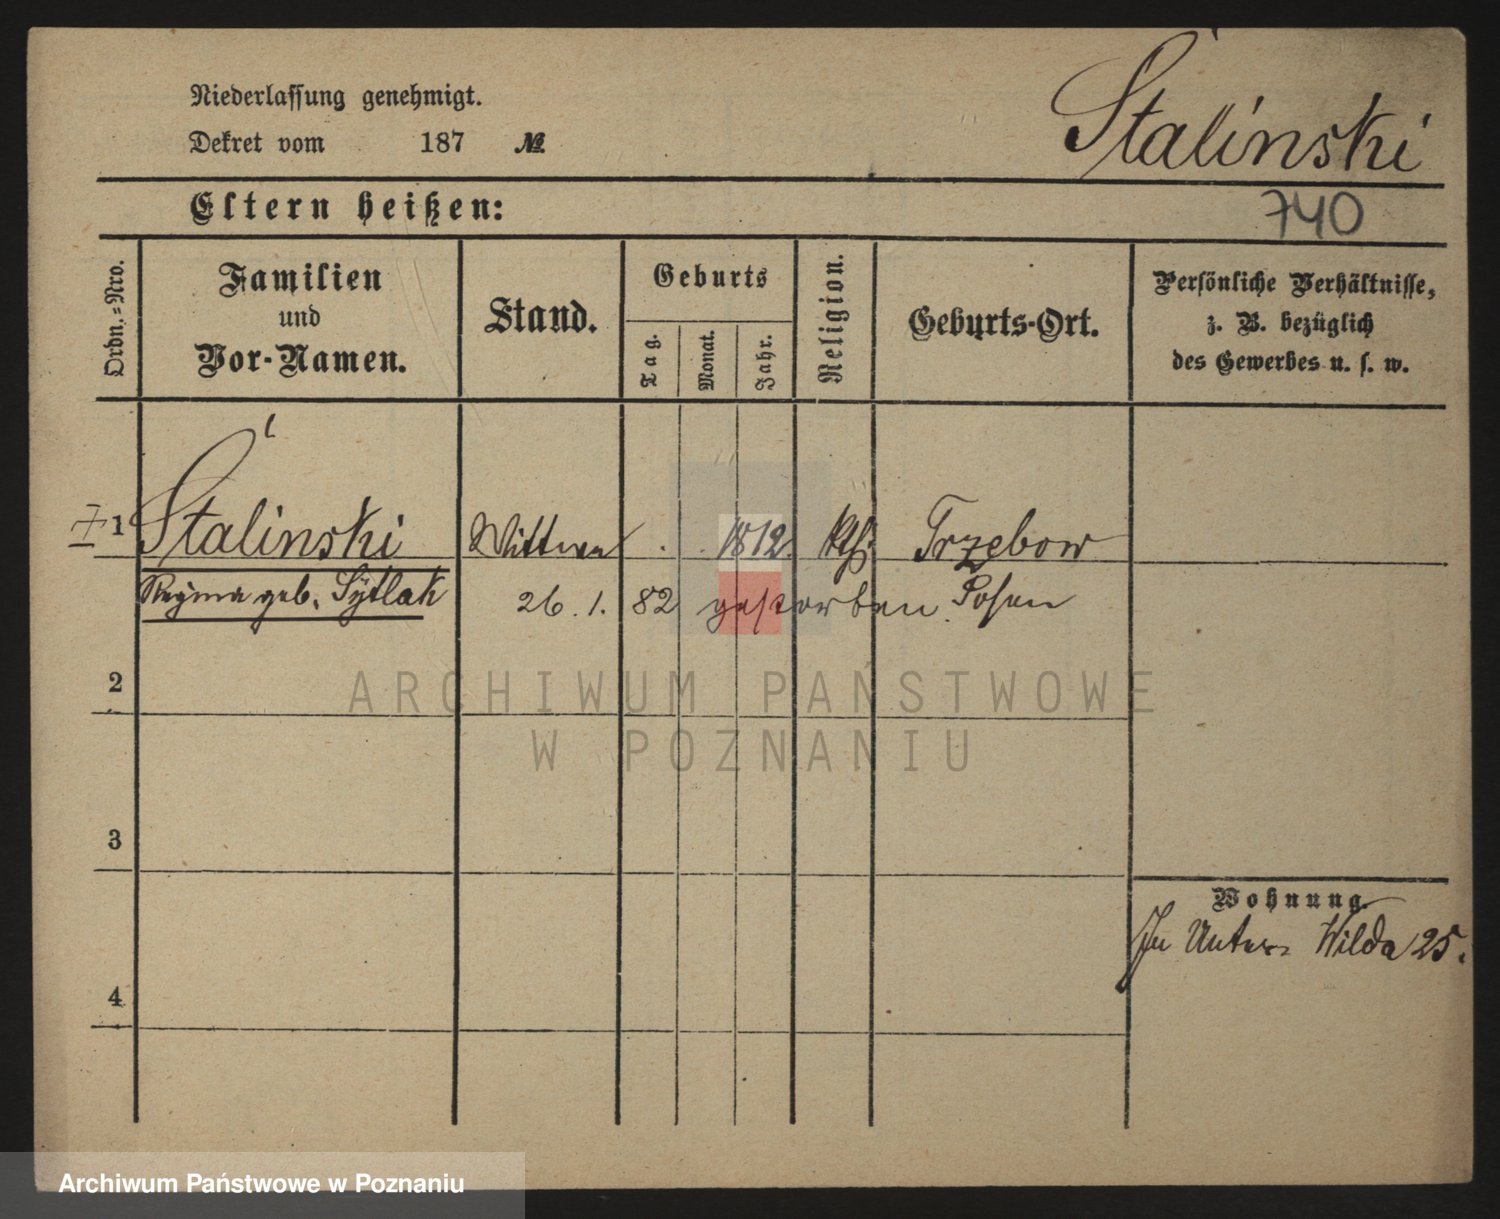 Niederlassung genehmigt.
Dekret vom 187 №
Stalinski
Eltern heißen:
740
Ordn.-Nro.
Familien und Vor-Namen.
Stand.
Geburts
Tag.
Monat.
Jahr.
Religion.
Geburts-Ort.
Persönliche Verhältnisse,
z. B. bezüglich
des Gewerbes u. s. w.
1 Stalinski Wittwe . . 1812. kth. Trzebow
Regina geb. Sytlak 26. 1. 82 gestorben. Posen
2
ARCHIWUM PAŃSTWOWE
W POZNANIU
3
Wohnung.
In Unter-Wilda 25.
4
Archiwum Państwowe w Poznaniu